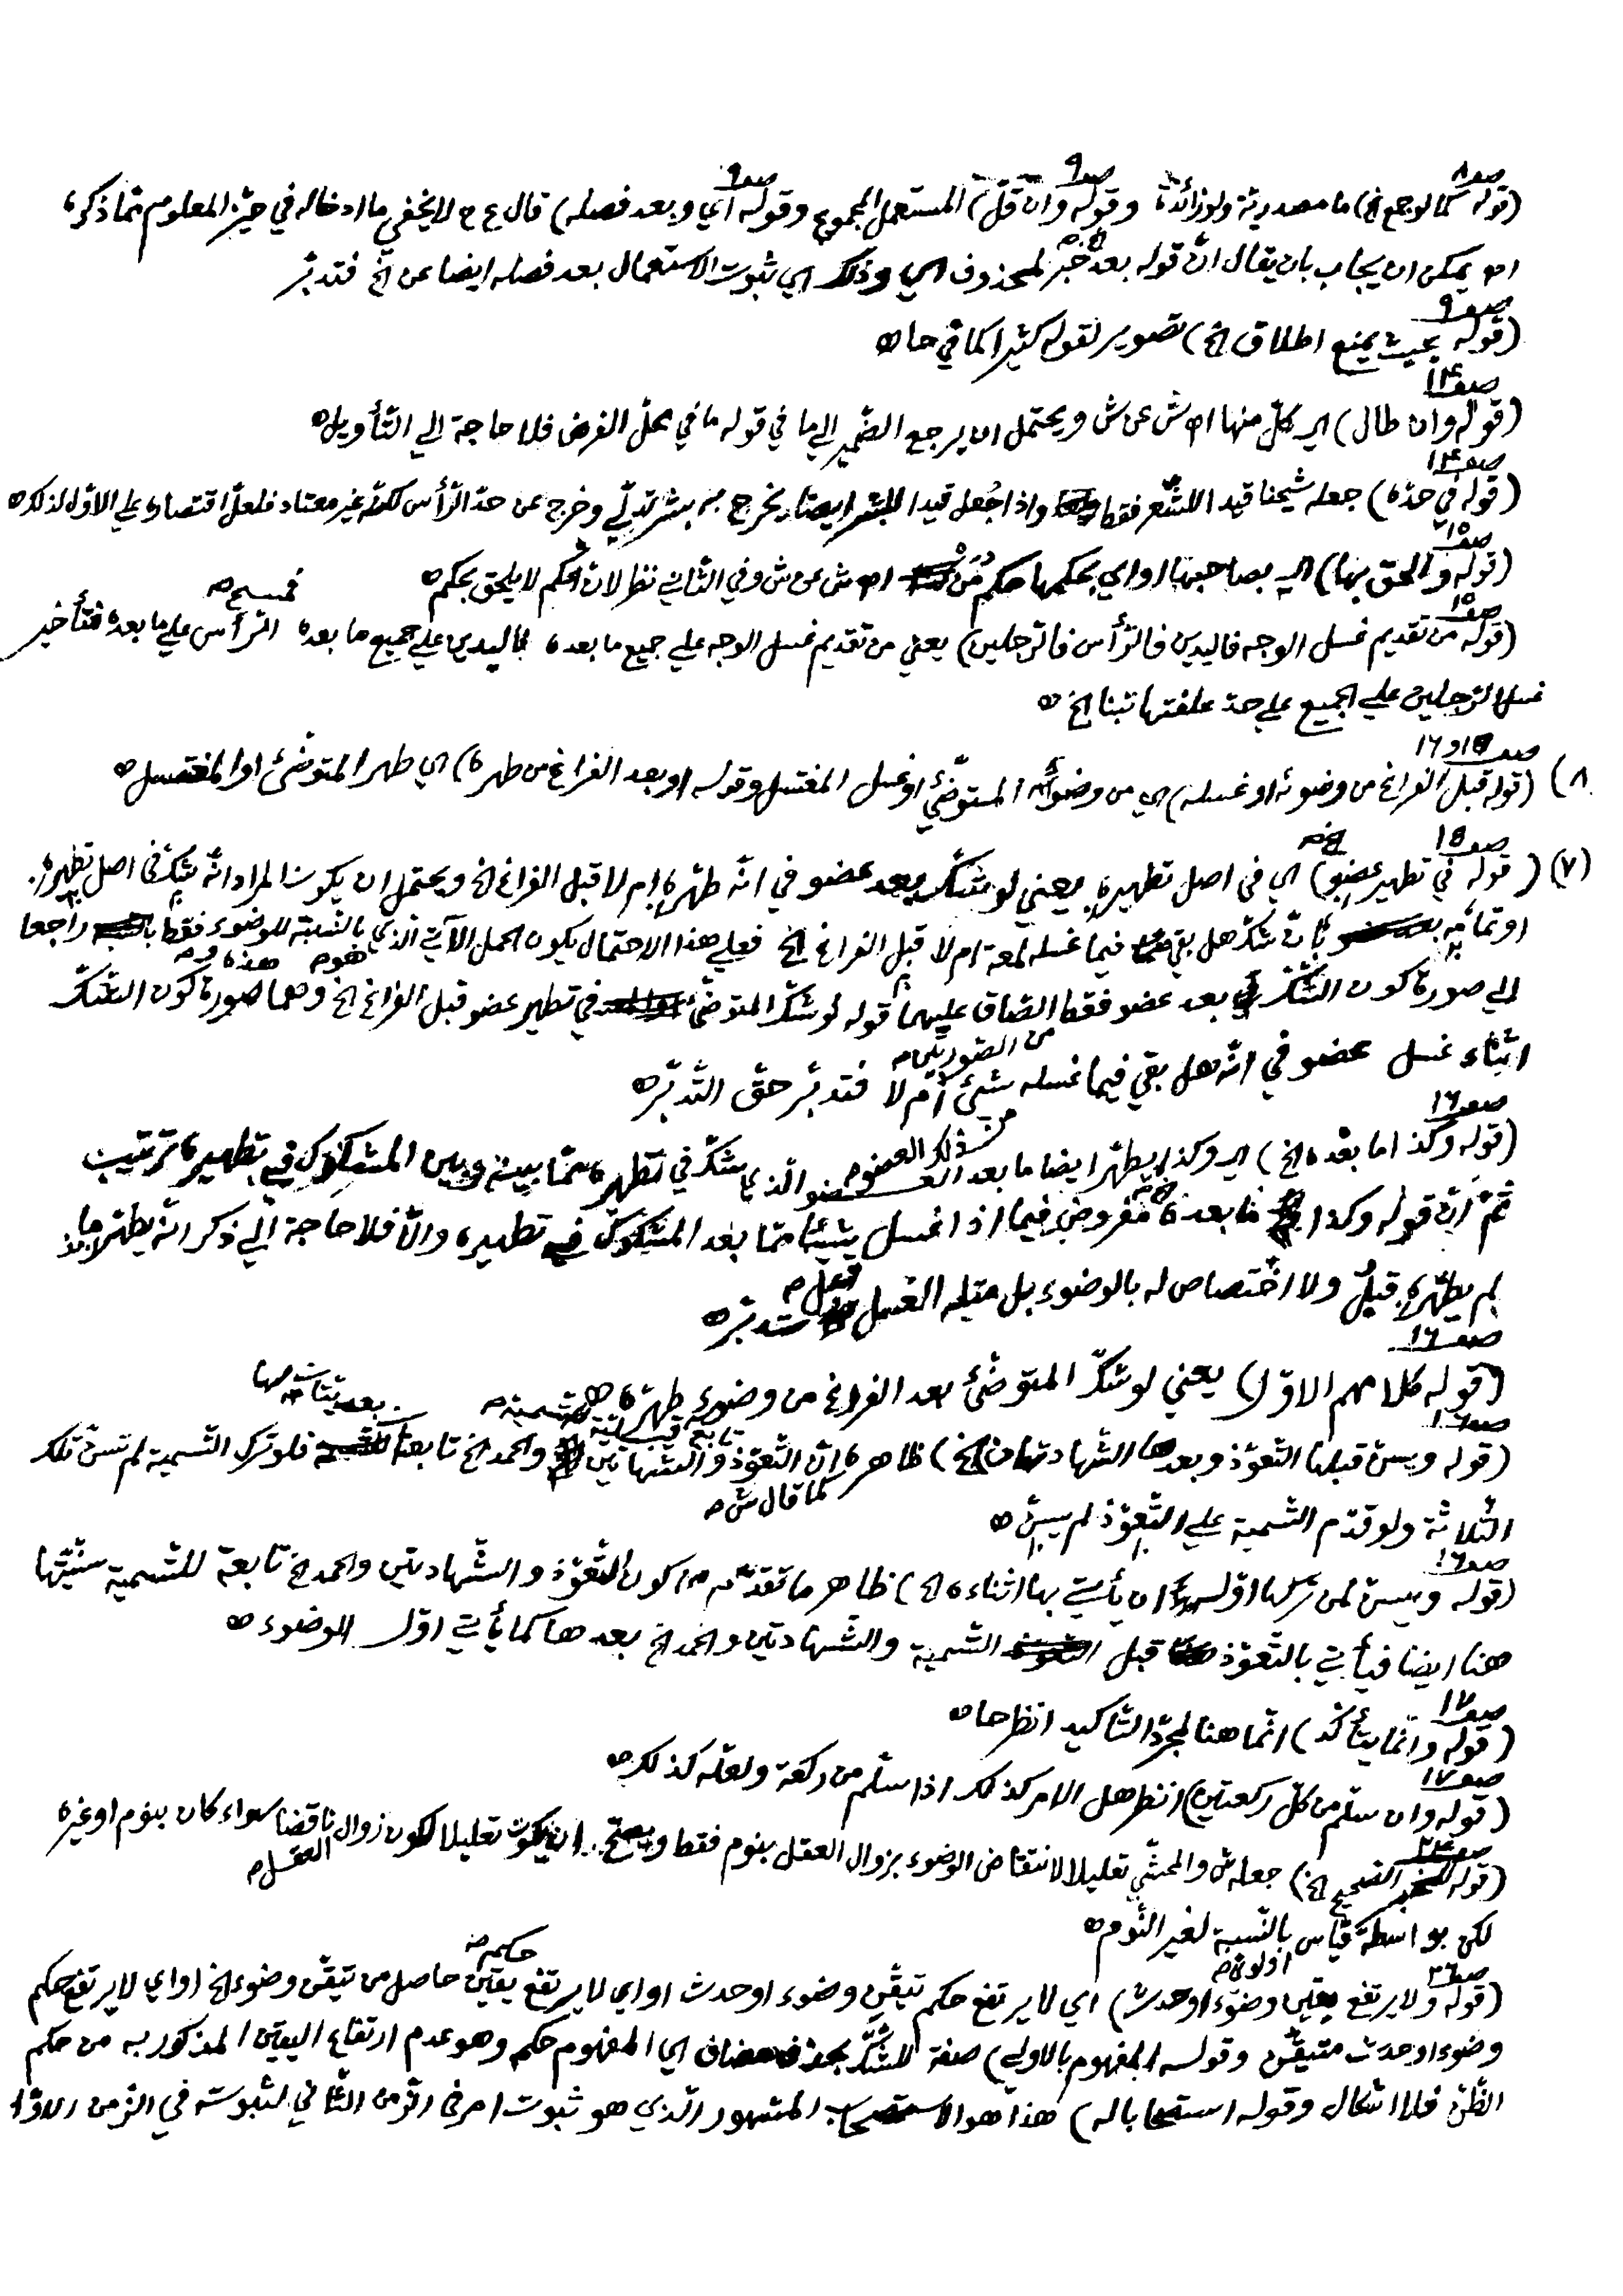 صه ٨ صه ٩ صه ٩
(قوله كما لو جمع الخ) ما مصدرية ولو زائدة وقوله وان قل) المستعمل المجموع وقوله اي وبعد فصله) قال ع ع لا يخفى ما ادخاله في حيز المعلوم مما ذكره
اه يمكن ان يجاب بان يقال ان قوله بعد الخ خبر لمحذوف اي وذلك اي ثبوت الاستعمال بعد فصله ايضا عن الخ فتدبر
صه ٩
(قوله بحيث يمنع اطلاق الخ) تصوير لقوله كثيرا كما في حا
صه ١٤
(قوله وان طال) اي كل منها اه ش عن ش ويحتمل ان يرجع الضمير الى ما في قوله ما في محل الفرض فلا حاجة الى التأويل
صه ١٤
(قوله في حده) جعله شيخنا قيد اللشعر فقط واذا جعل قيدا للبشر ايضا يخرج به بشر تدلى وخرج عن حد الرأس لكنه غير معتاد فلعل اقتصاره على الاول لذلك
صه ١٥
(قوله والحق بها) اي بصاحبها او اي بحكمها حكم من اه ش عن ش وفي الثاني نظر لان الحكم لا يلحق بحكم
صه ١٥ فمسح
(قوله من تقديم غسل الوجه فاليدين فالرأس فالرجلين) يعني من تقديم غسل الوجه على جميع ما بعده فاليدين على جميع ما بعده الرأس على ما بعده فتأخير
غسل الرجلين على الجميع على حد علفتها تبنا الخ
صه ١٥ و ١٦
٨) (قوله قبل الفراغ من وضوئه او غسله) اي من وضوء المتوضئ او غسل المغتسل وقوله او بعد الفراغ من طهره) اي طهر المتوضئ او المغتسل
صه ١٥ الخ
(٧) (قوله في تطهير عضو) اي في اصل تطهيره يعني لو شك بعد عضو في انه طهره ام لا قبل الفراغ الخ ويحتمل ان يكون المراد انه شك في اصل تطهيره
او تمامه بان شك هل بقي فيما غسله لمعة ام لا قبل الفراغ الخ فعلى هذا الاحتمال يكون الحمل الآتي الذي بالنسبة للوضوء فقط راجعا
هو هذه
الى صورة كون الشك بعد عضو فقط الصادق عليهما قوله لو شك المتوضئ في تطهير عضو قبل الفراغ الخ وهما صورة كون الشك
من الصورتين
اثناء غسل عضو في انه هل بقي فيما غسله شئ ام لا فتدبر حق التدبر
صه ١٦ من ذلك العضو
(قوله وكذا ما بعده الخ) اي وكذا يطهر ايضا ما بعد العضو الذي شك في تطهره مما بينه وبين المشكوك في تطهيره ترتيب
ثم ان قوله وكذا ما بعده الخ مفروض فيما اذا غسل شيئا مما بعد المشكوك في تطهيره والا فلا حاجة الى ذكر انه يطهر ما بعد
لم يطهره قبل ولا اختصاص له بالوضوء بل مثله الغسل تدبر
صه ١٦
(قوله كلامهم الاول) يعني لو شك المتوضئ بعد الفراغ من وضوئه طهره
صه ١٦
(قوله ويسن قبلها التعوذ وبعدها الشهادتان الخ) ظاهره ان التعوذ والشهادتين والحمد الخ تابعة فلو ترك التسمية لم تسن تلك
كما قال ش
الثلاثة ولو قدم التسمية على التعوذ لم يسن
صه ١٦
(قوله ويسن لمن تركها اوله ان يأتي بها اثناءه الخ) ظاهر ما تقدم من كون التعوذ والشهادتين والحمد الخ تابعة للتسمية سنيتها
هنا ايضا فيأتي بالتعوذ قبل التسمية والشهادتين والحمد الخ بعدها كما يأتي اول الوضوء
صه ١٧
(قوله وانما يتأكد) انما هنا لمجرد التاكيد انظر حا
صه ١٧
(قوله وان سلم من كل ركعتين) انظر هل الامر كذلك اذا سلم من ركعة ولعله كذلك
صه ٢٤
(قوله للخبر الصحيح الخ) جعله ش والمحشي تعليلا لانتقاض الوضوء بزوال العقل بنوم فقط ويصح ان يكون تعليلا لكون زوال العقل ناقضا سواء كان بنوم او غيره
لكن بواسطة قياس بالنسبة لغير النوم
صه ٣٦ حكم
(قوله ولا يرتفع يقين وضوء او حدث) اي لا يرتفع حكم تيقن وضوء او حدث او اي لا يرتفع يقين حاصل من تيقن وضوء الخ او اي لا يرتفع حكم
وضوء او حدث متيقن وقوله المفهوم بالاولى) صفة للشك بحذف مضاف اي المفهوم حكم وهو عدم ارتفاع اليقين المذكور به من حكم
الظن فلا اشكال وقوله استصحابا له) هذا هو الاستصحاب المشهور الذي هو ثبوت امر في الزمن الثاني لثبوته في الزمن الاول